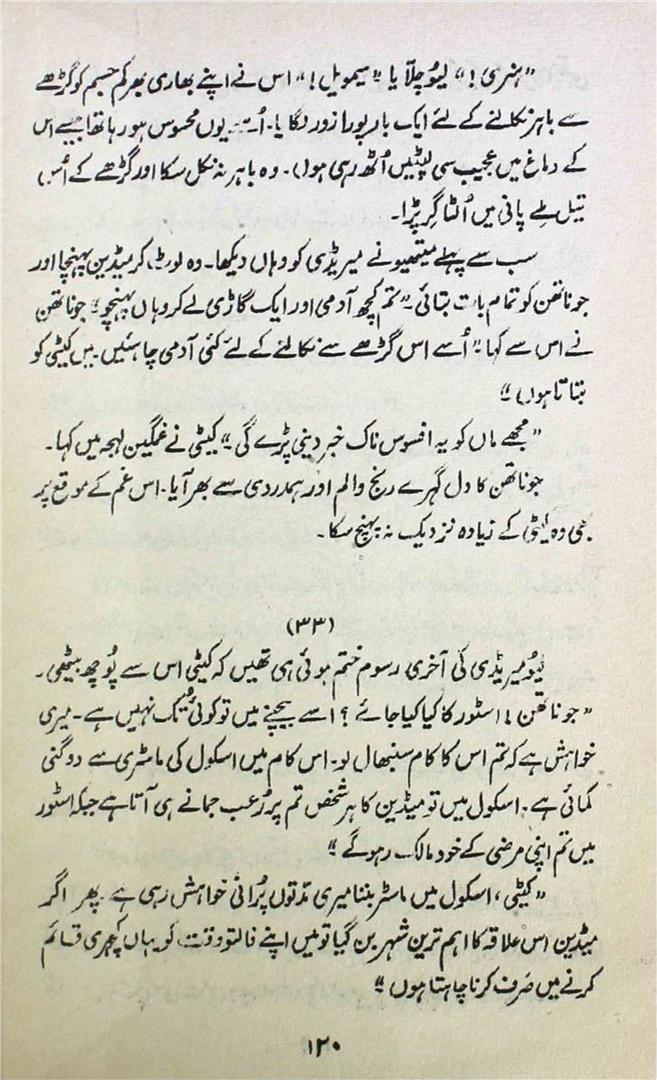 "ہنری!" لیو چلّایا "سیمویل!" اس نے اپنے بھاری بھرکم جسم کو گڑھے
سے باہر نکالنے کے لئے ایک بار پورا زور لگایا۔ اُسے یوں محسوس ہو رہا تھا جیسے اس
کے دماغ میں عجیب سی لپٹیں اُٹھ رہی ہوں۔ وہ باہر نہ نکل سکا اور گڑھے کے اُس
تیل ملے پانی میں اُلٹا گر پڑا۔
سب سے پہلے میتھیو نے میریڈی کو وہاں دیکھا۔ وہ لوٹ کر میڈین پہنچا اور
جوناتھن کو تمام بات بتائی۔ "تم کچھ آدمی اور ایک گاڑی لے کر وہاں پہنچو" جوناتھن
نے اس سے کہا۔ "اُسے اس گڑھے سے نکالنے کے لئے کئی آدمی چاہئیں۔ میں کیٹی کو
بتاتا ہوں"
"مجھے ماں کو یہ افسوس ناک خبر دینی پڑے گی۔" کیٹی نے غمگین لہجہ میں کہا۔
جوناتھن کا دل گہرے رنج و الم اور ہمدردی سے بھر آیا۔ اس غم کے موقع پر
بھی وہ کیٹی کے زیادہ نزدیک نہ پہنچ سکا۔
(۳۳)
لیو میریڈی کی آخری رسوم ختم ہوئی ہی تھیں کہ کیٹی اس سے پوچھ بیٹھی۔
"جوناتھن! اسٹور کا کیا کیا جائے؟ اسے بیچنے میں تو کوئی تُک نہیں ہے۔ میری
خواہش ہے کہ تم اس کا کام سنبھال لو۔ اس کام میں اسکول کی ماسٹری سے دوگنی
کمائی ہے۔ اسکول میں تو میڈین کا ہر شخص تم پر رُعب جمانے ہی آتا ہے جبکہ اسٹور
میں تم اپنی مرضی کے خود مالک رہو گے"
"کیٹی، اسکول میں ماسٹر بننا میری مدتوں پُرانی خواہش رہی ہے۔ پھر اگر
میڈین اس علاقہ کا اہم ترین شہر بن گیا تو میں اپنے فالتو وقت کو یہاں کچہری قائم
کرنے میں صَرف کرنا چاہتا ہوں"
۱۲۰